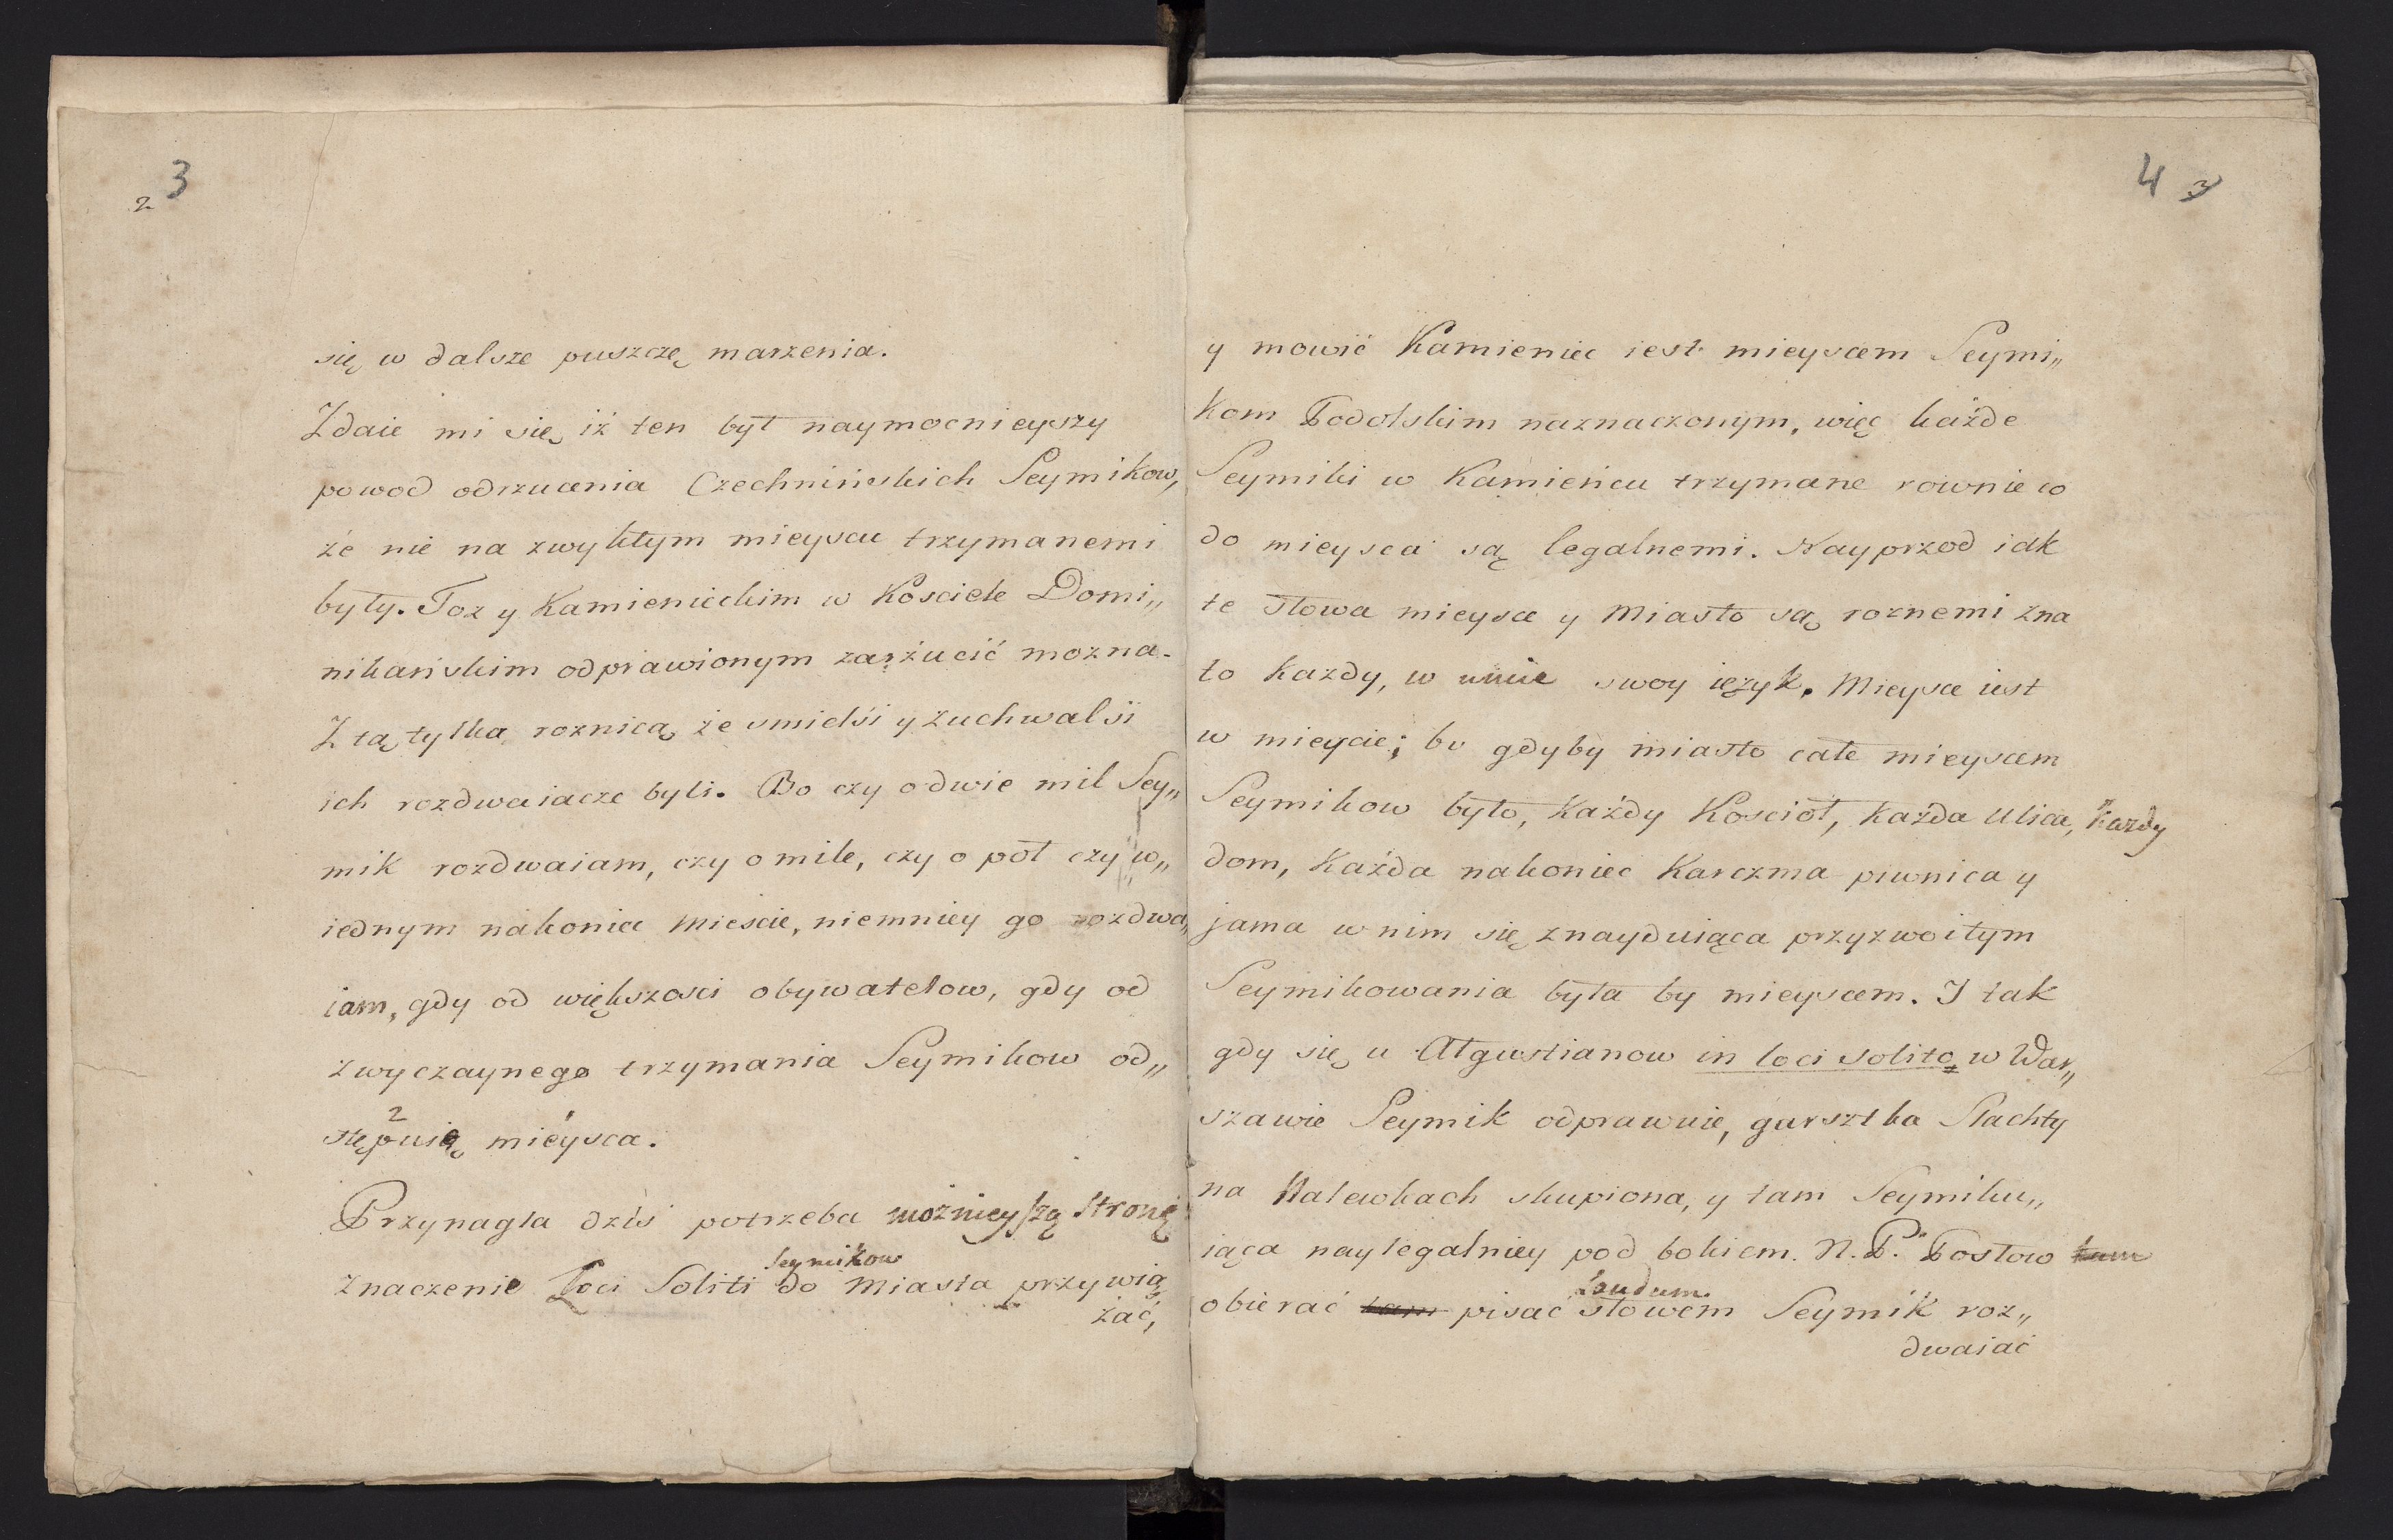 3
2
się w dalsze puszczę marzenia.
Zdaie mi się iż ten był naymocnieyszy
powod odrzucenia Czechnińskich Seymikow,
że nie na zwykłym mieyscu trzymanemi
były. Toż y Kamienieckim w Kosciele Domi„
nikańskim odprawionym zarżucić mozna.
Z tą tylka roznicą że smielsi y zuchwalsi
ich rozdwaiacze byli. Bo czy o dwie mil Sey„
mik rozdwaiam, czy o mile, czy o poł czy w„
iednym nakoniec Miescie, niemniey go rozdwa„
iam, gdy od większosci obywatelow, gdy od
zwyczaynego trzymania Seymikow od„
2
stępuię mieysca.
Przynagla dziś potrzeba możnieyszą Stronę
Seymikow
Znaczenie Loci Soliti do Miasta przywią
zać,
4 3
y mowić Kamieniec iest mieyscem Seymi„
kom Podolskim naznaczonym, więc każde
Seymiki w Kamieńcu trzymane rownie co
do mieysca są legalnemi. Nayprzod iak
te słowa mieysce y Miasto są roznemi zna
to kazdy, w umie swoy ięzyk. Mieysce iest
w mieycie; bo gdyby miasto całe mieyscem
Seymikow było, każdy Kosciół, każda Ulica, każdy
dom, każda nakoniec Karczma piwnica y
jama w nim się znayduiąca przyzwoitym
Seymikowania była by mieyscem. I tak
gdy się u Atgustianow in loci solito w War„
szawie Seymik odprawuie, garsztka Slachty
na Nalewkach skupiona, y tam Seymiku„
iąca naylegalniey pod bokiem N. P. Posłow tam
Laudum
obierać tam pisać słowem Seymik roz„
dwaiać